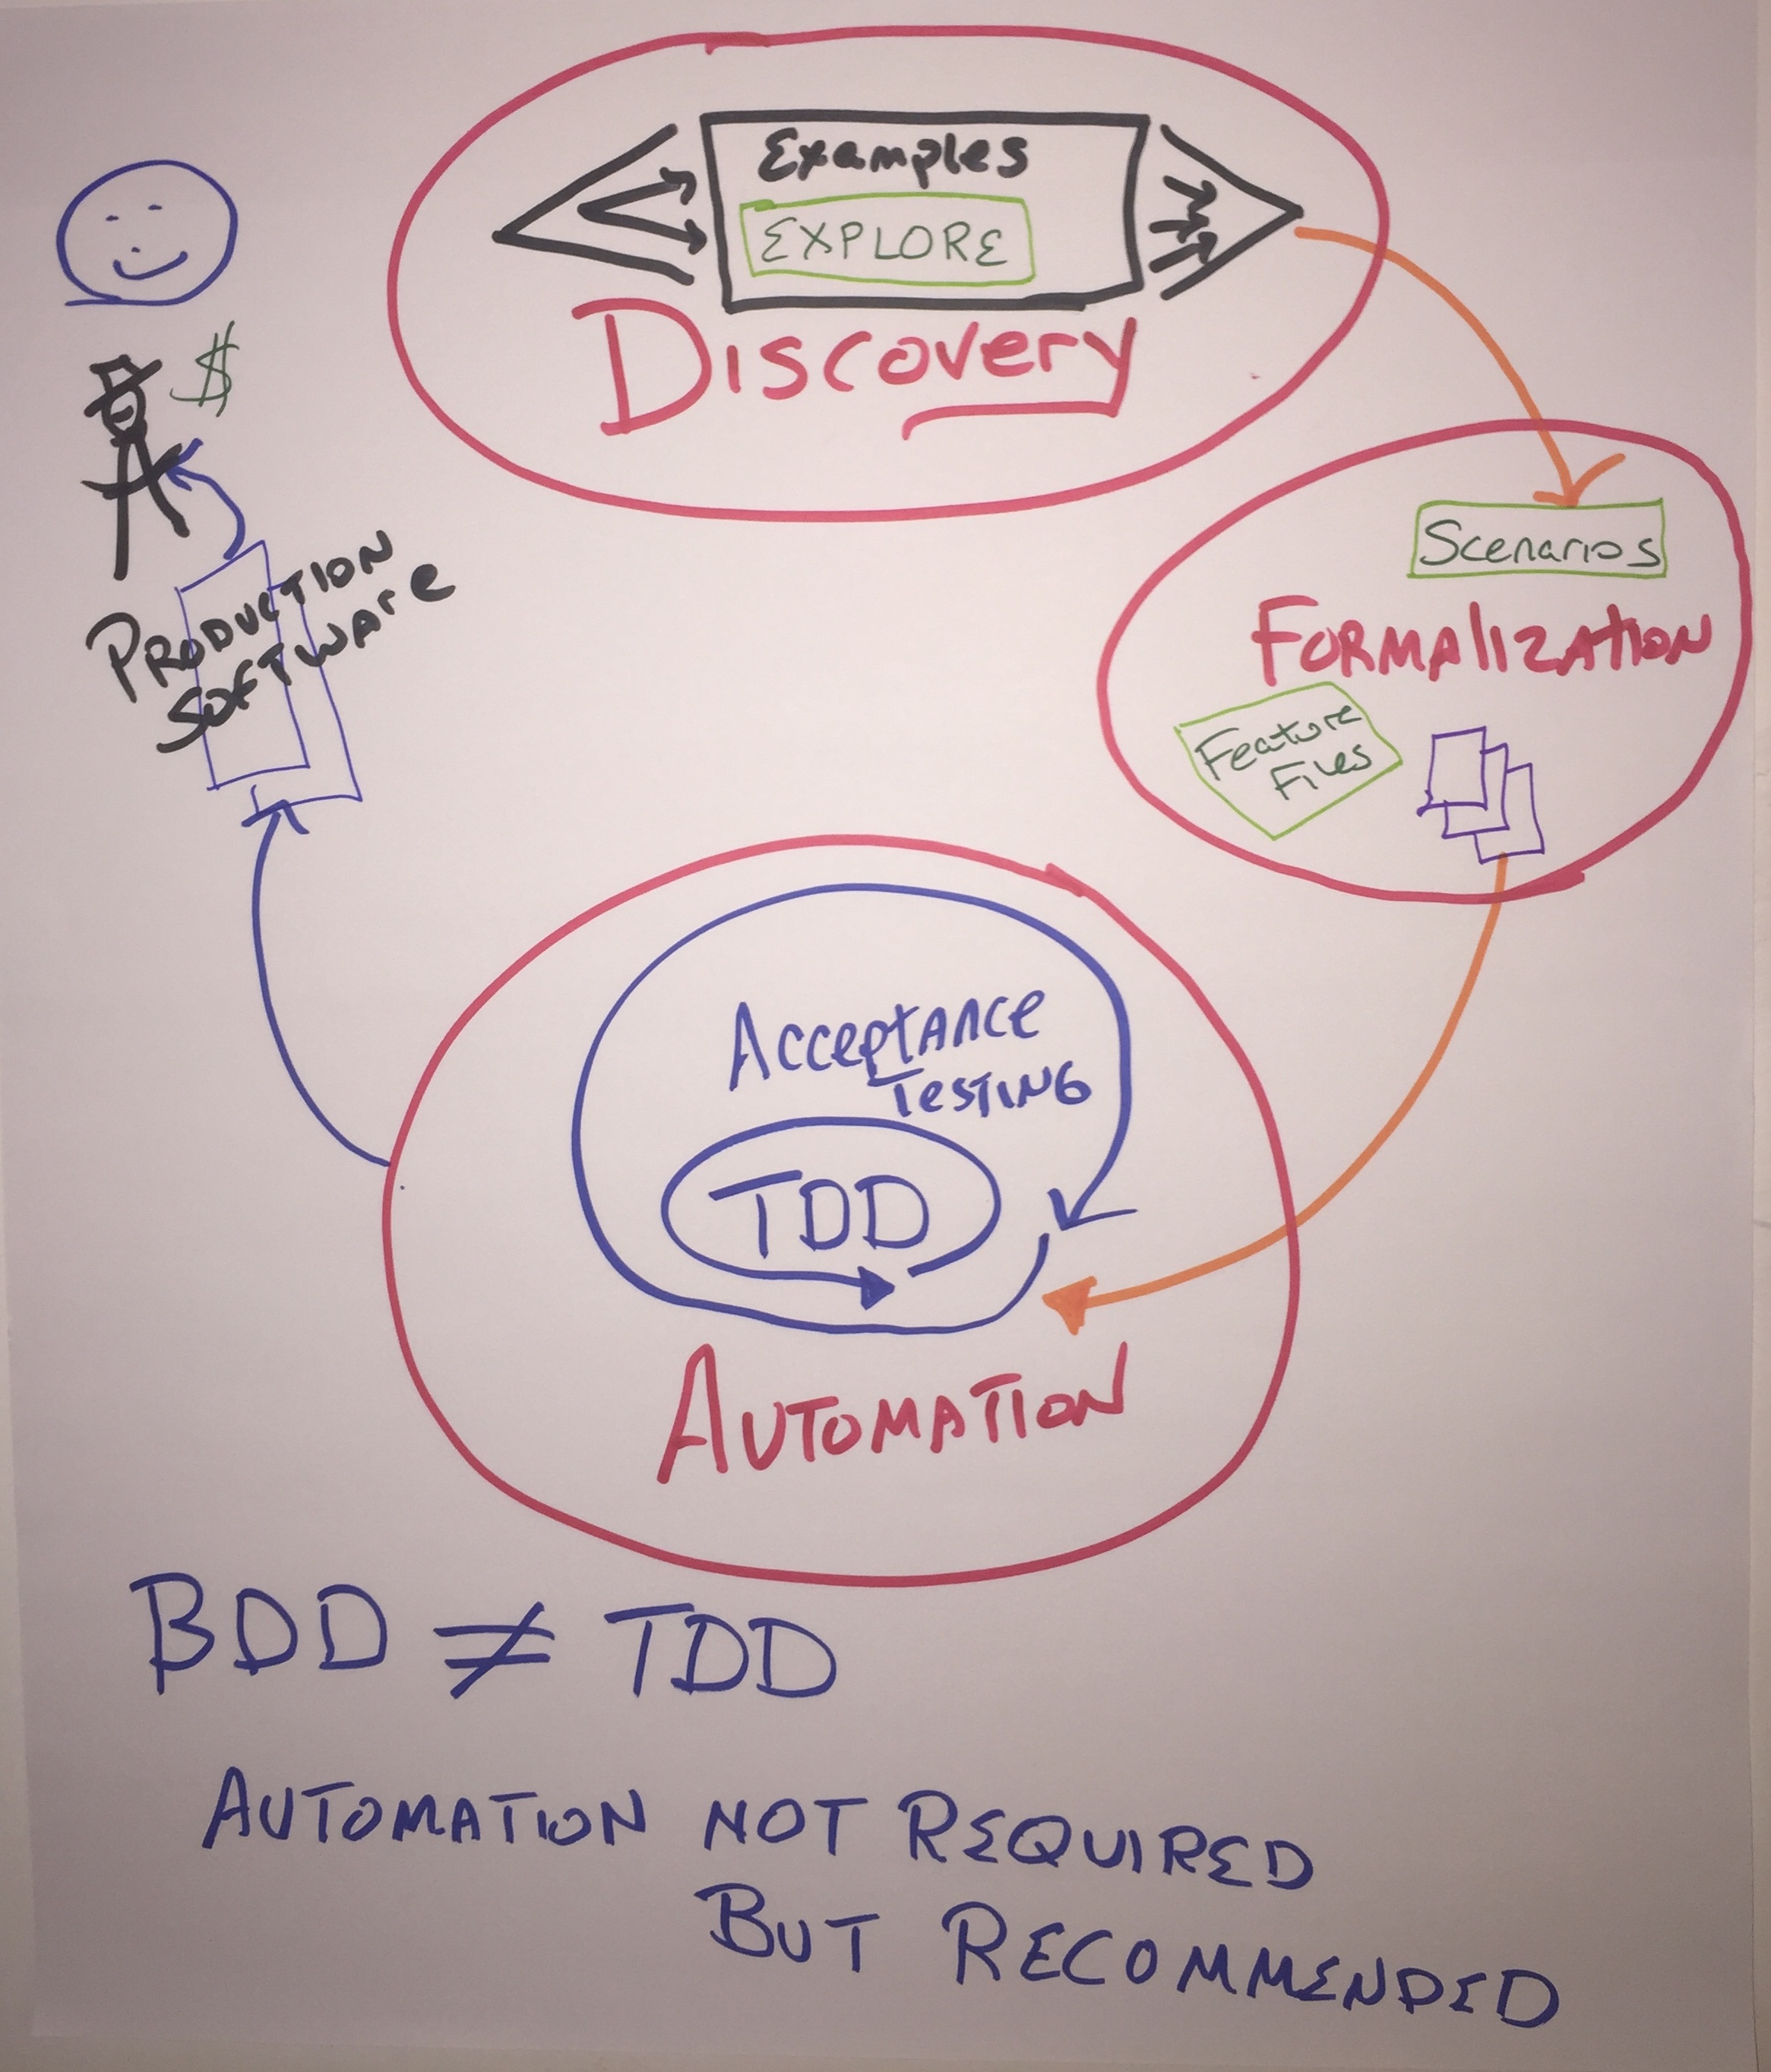 Examples
EXPLORE
Discovery
$
PRODUCTION
SOFTWARE
Scenarios
FORMALIZATION
Feature
Files
Acceptance
TESTING
TDD
AUTOMATION
BDD ≠ TDD
AUTOMATION NOT REQUIRED
BUT RECOMMENDED